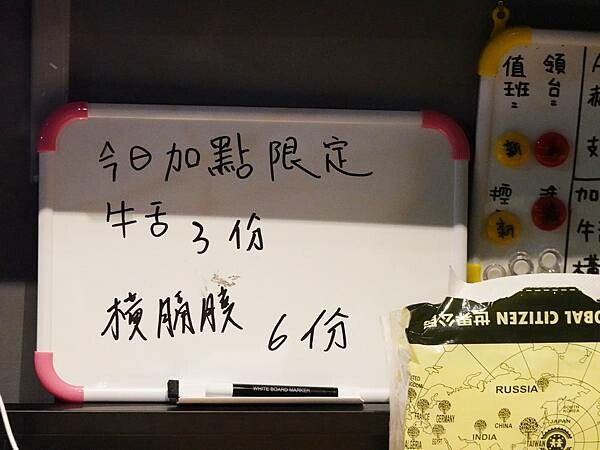 今日加點限定
牛舌 3份
橫膈膜 6份
WHITE BOARD MARKER
值班=
領台=
加
牛
橫
OBAL CITIZEN 世界公
RUSSIA
FRANCE
GERMANY
CHINA
JAPAN
INDIA
EGYPT
TAIWAN